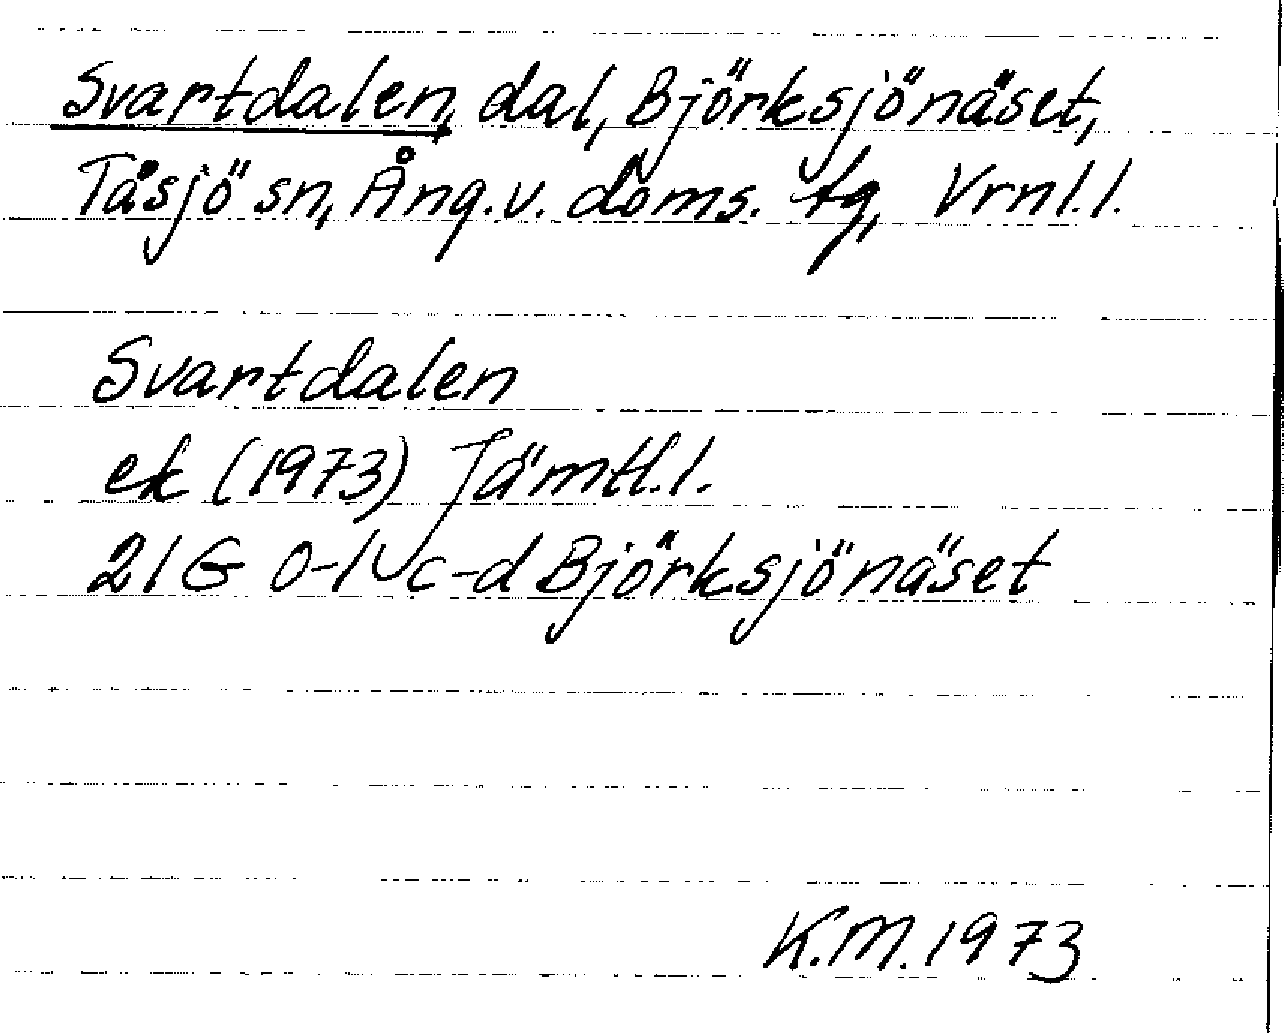 Svartdalen, dal, Björksjönäset,
Tåsjö sn, Ång. v. doms. tg, Vrnl. l.
Svartdalen
ek (1973) Jämtl. l.
21G 0-1 c-d Björksjönäset
K.M. 1973